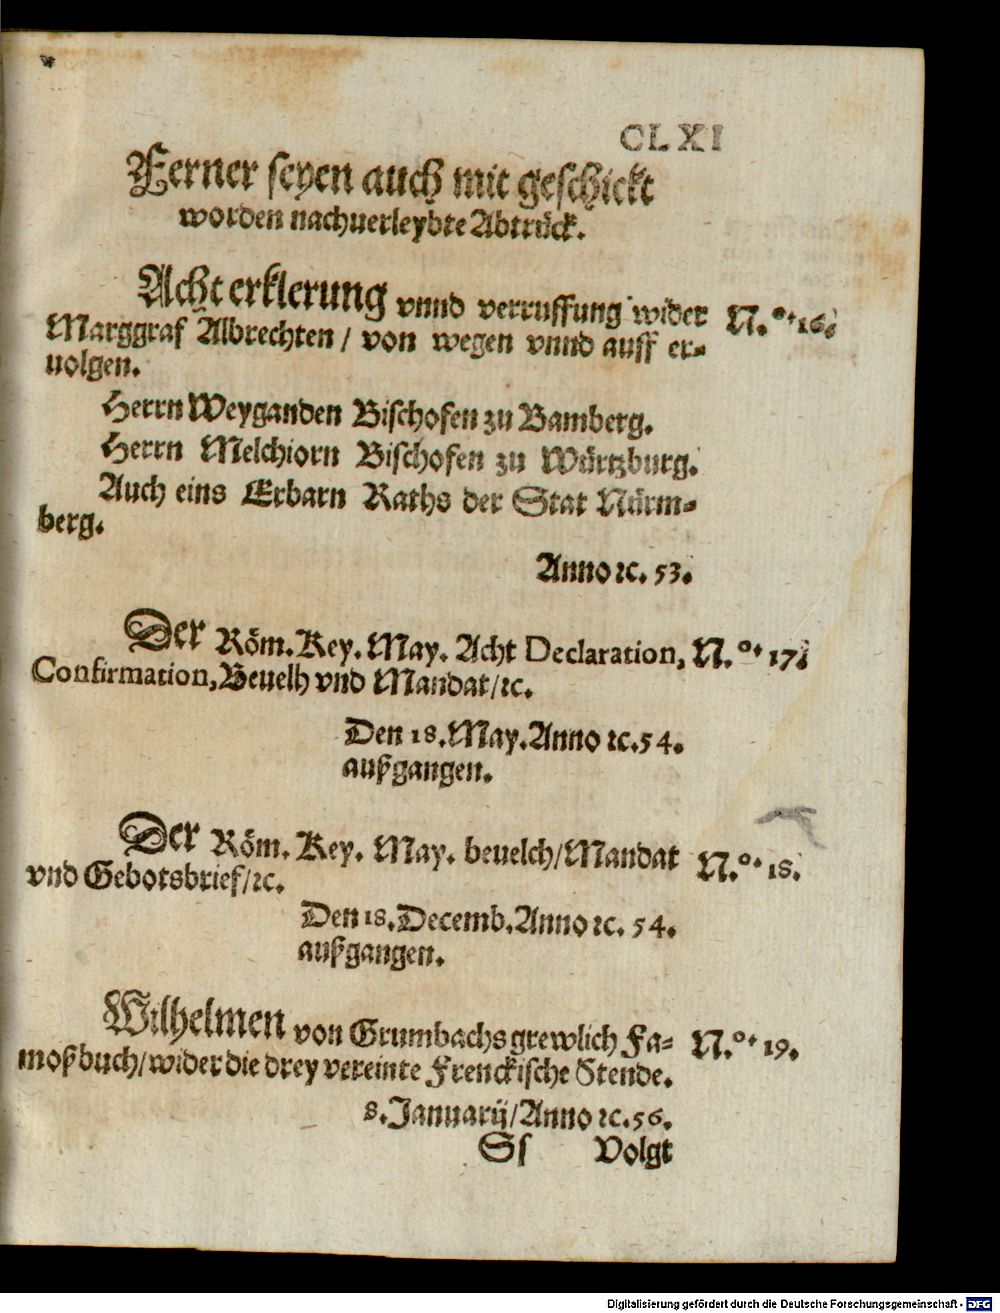 CLXI
Ferner seyen auch mit geschickt
worden nachuerleybte Abtrück.
Acht erklerung vnnd verruffung wider N.º. 16.
Marggraf Albrechten / von wegen vnnd auff er-
uolgen.
Herrn Weyganden Bischofen zu Bamberg.
Herrn Melchiorn Bischofen zu Würtzburg.
Auch eins Erbarn Raths der Stat Nürm-
berg.
Anno ꝛc. 53.
Der Röm. Key. May. Acht Declaration, N.º. 17.
Confirmation, Beuelh vnd Mandat/ꝛc.
Den 18. May. Anno ꝛc. 54.
außgangen.
Der Röm. Key. May. beuelch/Mandat N.º. 18.
vnd Gebotsbrief/ꝛc.
Den 18. Decemb. Anno ꝛc. 54.
außgangen.
Wilhelmen von Grumbachs grewlich Fa- N.º. 19.
moßbuch/wider die drey vereinte Frenckische Stende.
8. Januarij/Anno ꝛc. 56.
Ss Volgt
Digitalisierung gefördert durch die Deutsche Forschungsgemeinschaft - DFG